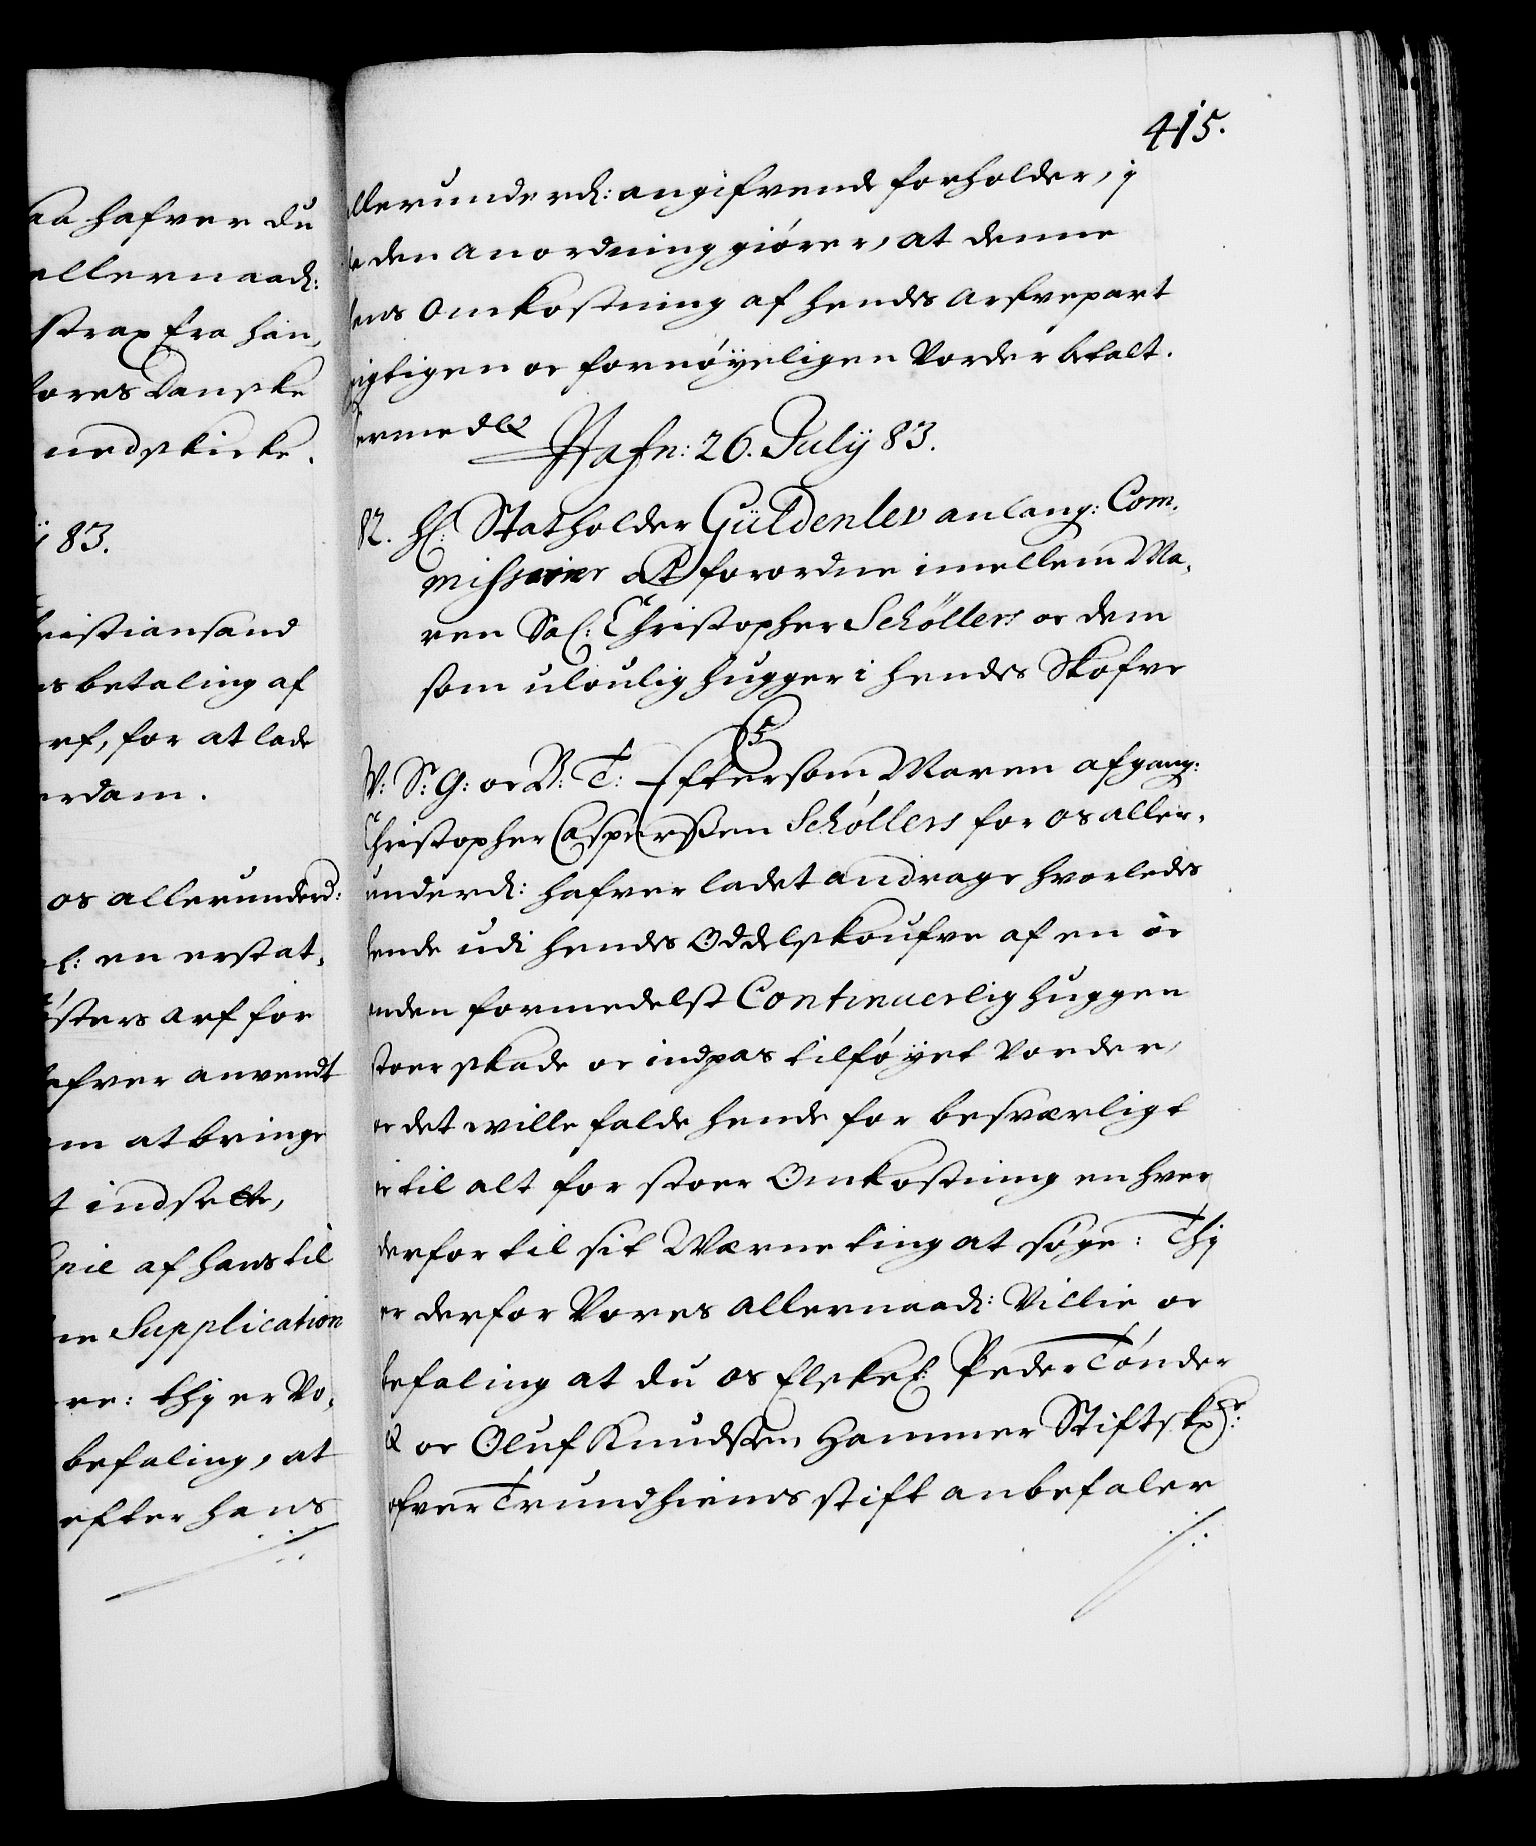 aa hafver du
allernaad:
strax fra han,
vores Danske
nedskicke.
83.
hristiansand
ns betaling af
rf, for at lade
erdam.
os allerunderd:
l: en erstat,
østers arf for
afver anvendt
em at bringe
t indsette,
pie af hans til
ne Supplication
re: thj er Vo,
befaling, at
efter hans
415.
llerunderd: angifvende forholder, j
den anordning giører, at denne
ens Omkostning af hendes arfvepart
rigtigen oc fornøyeligen vorder betalt.
ermed &
Hafn: 26. Julij 83.
82. H: Statholder Güldenlev anlang: Com,
missarier at forordne imellem Ma,
ren Sal: Christopher Schöllers oc dem
som ulovlig hugger i hendes Skofve
C5
V: S: G: oc B: T: Eftersom Maren afgang:
Christopher Caspersen Schøllers for os aller,
underd: hafver ladet andrage hvorledes
hende udi hendes Oddelskoufve af en oc
anden formedelst Continuerlig huggen
stoer skade oc indpas tilføyet vorder,
oc det wille falde hende for besværligt
oc til alt for stoer Omkostning en hver
derfor til sit Værneting at søge: Thj
er derfor Vores allernaad: Villie oc
befaling at du os Elskel: Peder Tønder
& oc Oluf Knudsen Hammer Stiftskr:
ofver Trundhiems stift anbefaler